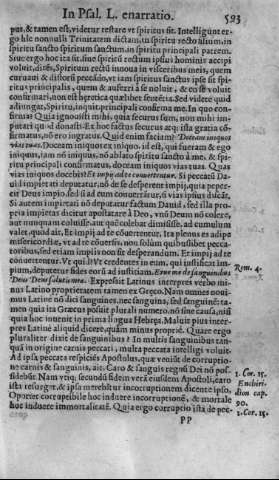 In Psal. L. enarratio. 593
put, & tamen est, videtur restare vt spiritus sit. Intelligunt er-
go hîc nonnulli Trinitatem dictam, in spiritu recto filium, in
spiritu sancto spiritum sanctum, in spiritu principali patrem.
Siue ergo hoc ita sit, siue spiritū rectum ipsius hominis accipi
voluit, dicēs, Spiritum rectū innoua in visceribus meis, quem
curuaui & distorsi peccādo, vt iam spiritus sanctus ipse sit spi-
ritus principalis, quem & auferri à se noluit, & eo se voluit
confirmari, non est hęretica quælibet sentētia. Sed videte quid
adiungat, Spiritu, inquit, principali confirma me. In quo con-
firmas? Quia ignouisti mihi, quia securus sum, non mihi im-
putari quod donasti. Et hoc factus securus atq; ista gratia cō-
firmatus, nō ero ingratus. Quid enim faciam? Doceam iniquos
vias tuas. Doceam iniquos ex iniquo. id est, qui fueram & ego
iniquus, iam nō iniquus, nō ablato spiritu sancto à me, & spi-
ritu principali confirmatus, doceam iniquos vias tuas. Quas
vias iniquos docebis? Et impij ad te conuertentur. Si peccatū Da-
uid impietati deputatur, nō de se desperent impij, quia peper-
cit Deus impio, sed si ad eum conuertātur, si vias ipsius discāt,
Si autem impietati nō deputatur factum Dauid, sed illa pro-
pria impietas dicitur apostatare à Deo, vnū Deum nō colere,
aut nunquam coluisse, aut quē colebat dimisisse, ad cumulum
valet, quod ait, Et impij ad te cōuertentur, Ita plenus es adipe
misericordiæ, vt ad te cōuersis, non solùm quibuslibet pecca-
toribus, sed etiam impijs non sit desperandum. Et impij ad te
conuertentur. Vt quid? Vt credentis in eum, qui iustificat im-
pium, deputetur fides eorū ad iustitiam. Erue me de sanguinibus Rom. 4.
Deus Deus salutis meæ. Expressit Latinus interpres verbo mi-
nus Latino proprietatem tamen ex Græco. Nam omnes noui-
mus Latinè nō dici sanguines, nec sanguina, sed sanguinē: ta-
men quia ita Græcus posuit plurali numero, nō sine causa, nisi
quia hoc inuenit in prima lingua Hebræa. Maluit pius inter-
pres Latinè aliquid dicere, quàm minus propriè. Quare ergo
pluraliter dixit de sanguinibus? In multis sanguinibus tan-
quā in origine carnis peccati, multa peccata intelligi voluit.
Ad ipsa peccata respiciēs Apostolus, quæ veniūt de corruptio-
ne carnis & sanguinis, ait. Caro & sanguis regnū Dei nō pos- 1. Cor. 15.
sidebūt. Nam vtiq; secundū fidem verā eiusdem Apostoli, caro Enchiri-
ista resurget, & ipsa merebitur incorruptionem dicente ipso. dion cap.
Oportet corruptibile hoc induere incorruptionē, & mortale 90.
hoc induere immortalitatē. Quia ergo corruptio ista de pec- 1. Cor. 15.
PP